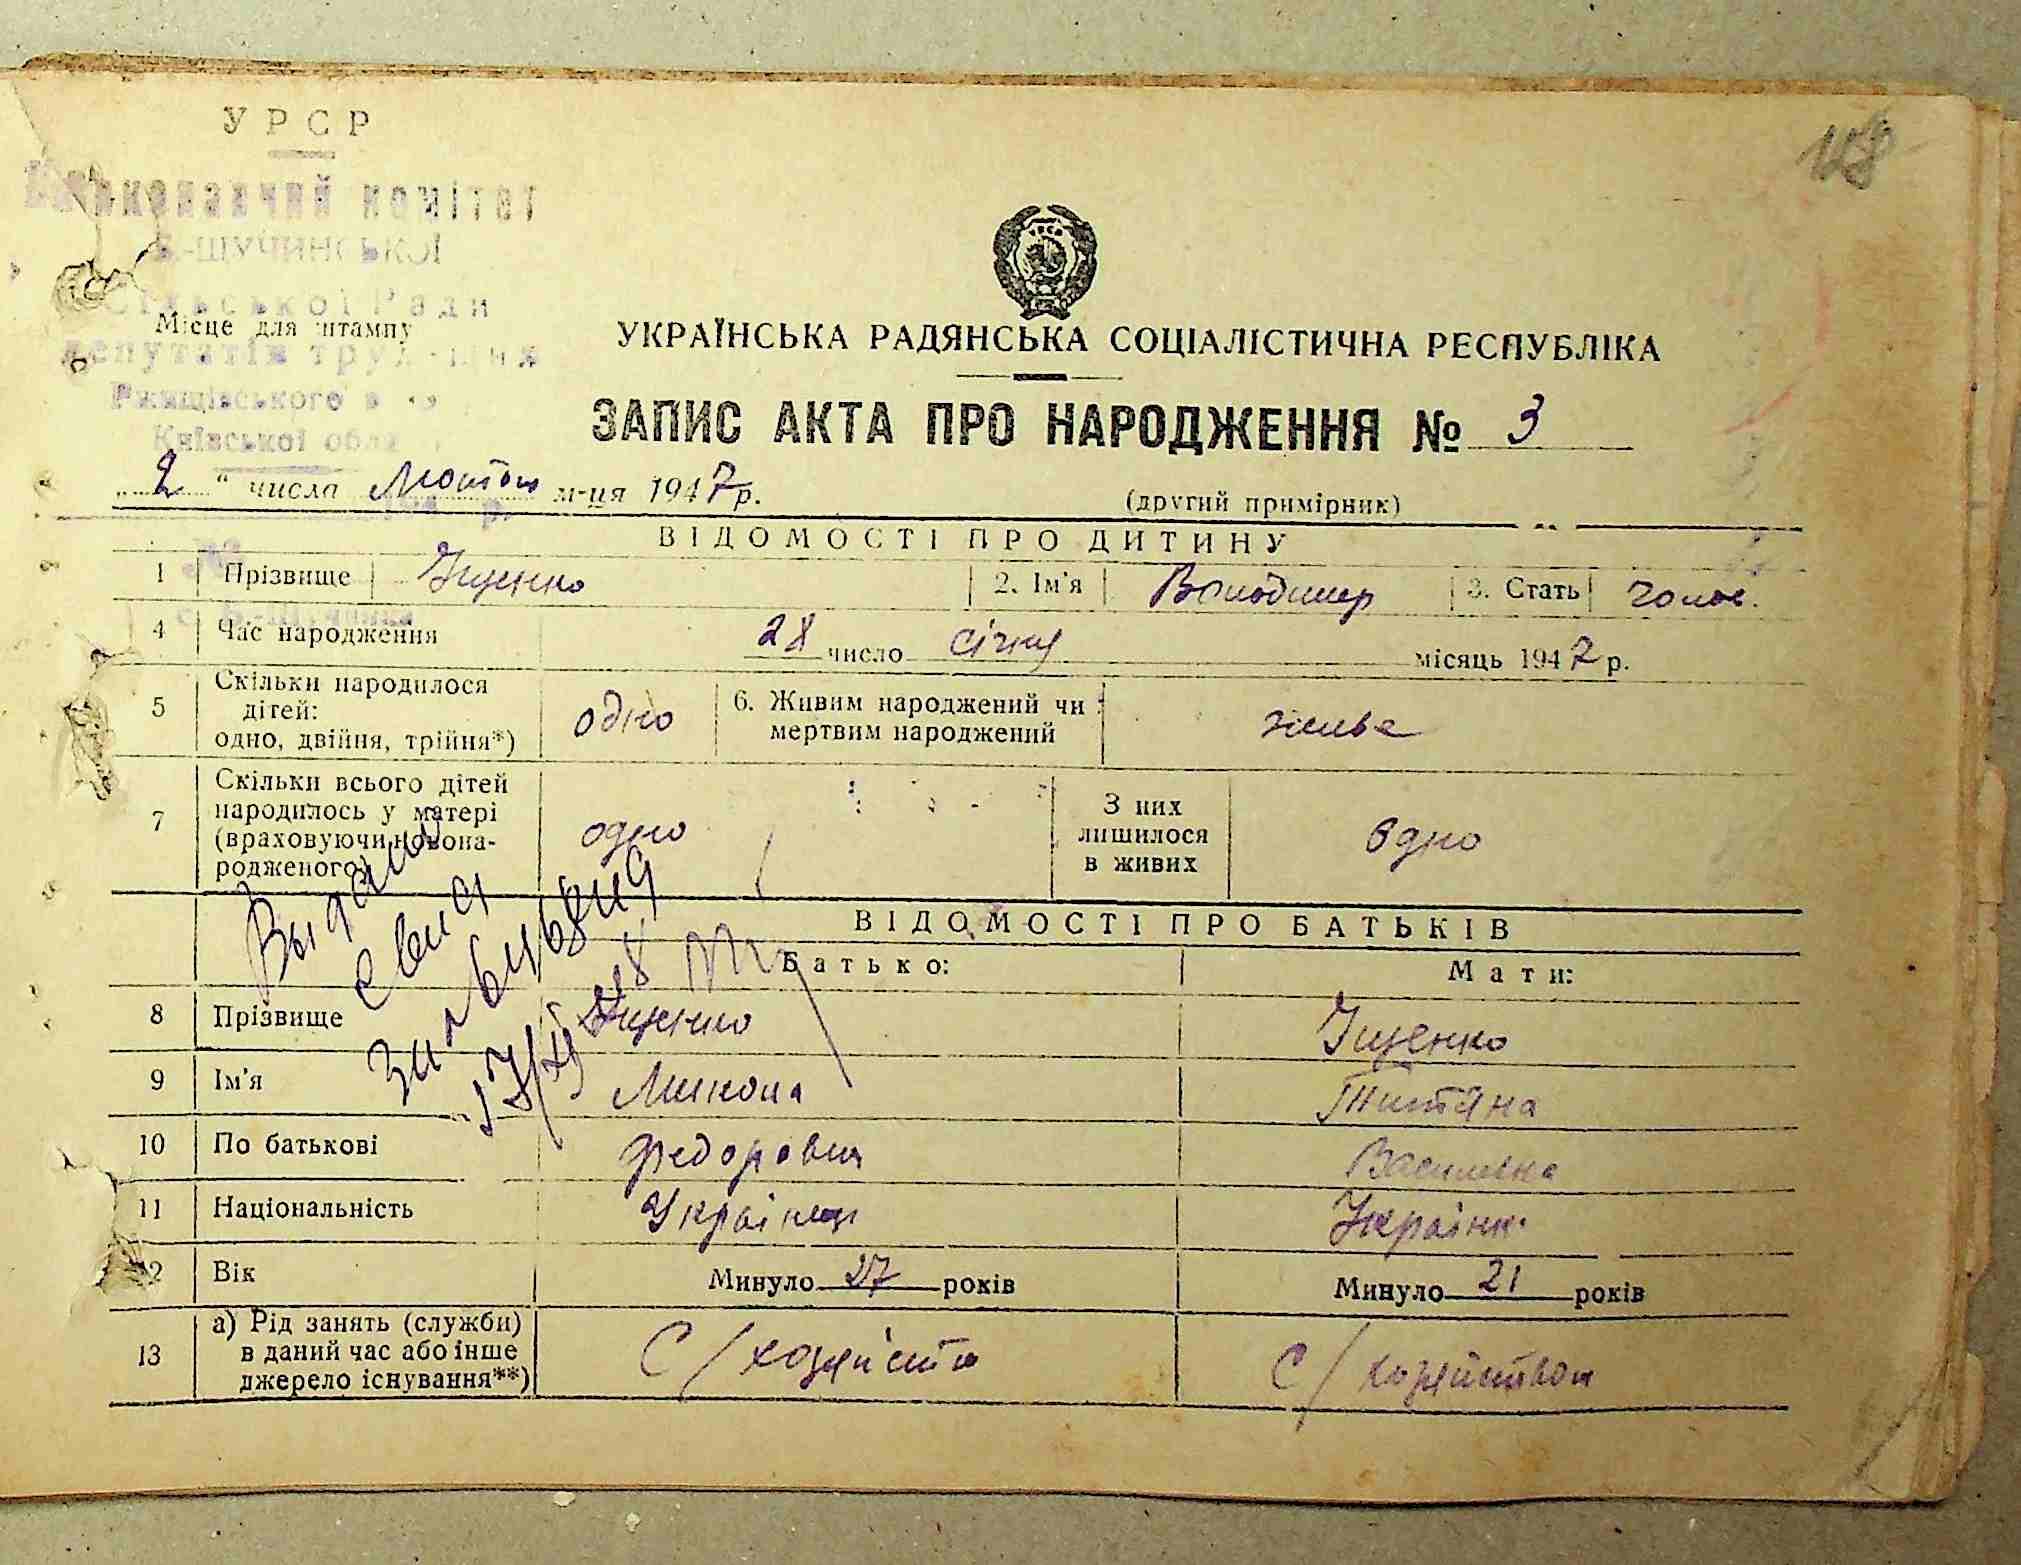 УРСР
Виконавчий комітет
Б-ЩУЧИНСЬКОЇ
Сільської Ради
Місце для штампу
депутатів трудящих
Ржищівського
Київської обл
148
УКРАЇНСЬКА РАДЯНСЬКА СОЦІАЛІСТИЧНА РЕСПУБЛІКА
ЗАПИС АКТА ПРО НАРОДЖЕННЯ № 3
„ 2 “ числа Лютого м-ця 1947 р.
(другий примірник)
ВІДОМОСТІ ПРО ДИТИНУ
1 Прізвище Іщенко 2. Ім'я Володимир 3. Стать чолов.
4 Час народження 28 число січня місяць 1947 р.
5 Скільки народилося дітей: одно, двійня, трійня*) одно 6. Живим народжений чи мертвим народжений живе
7 Скільки всього дітей народилось у матері (враховуючи новонародженого) одно З них лишилося в живих одно
ВІДОМОСТІ ПРО БАТЬКІВ
Батько: Мати:
8 Прізвище Іщенко Іщенко
9 Ім'я Микола Титяна
10 По батькові Федорович Василівна
11 Національність Українець Українк
12 Вік Минуло 27 років Минуло 21 років
13 а) Рід занять (служби) в даний час або інше джерело існування**) С/хозяйство С/хозяйством